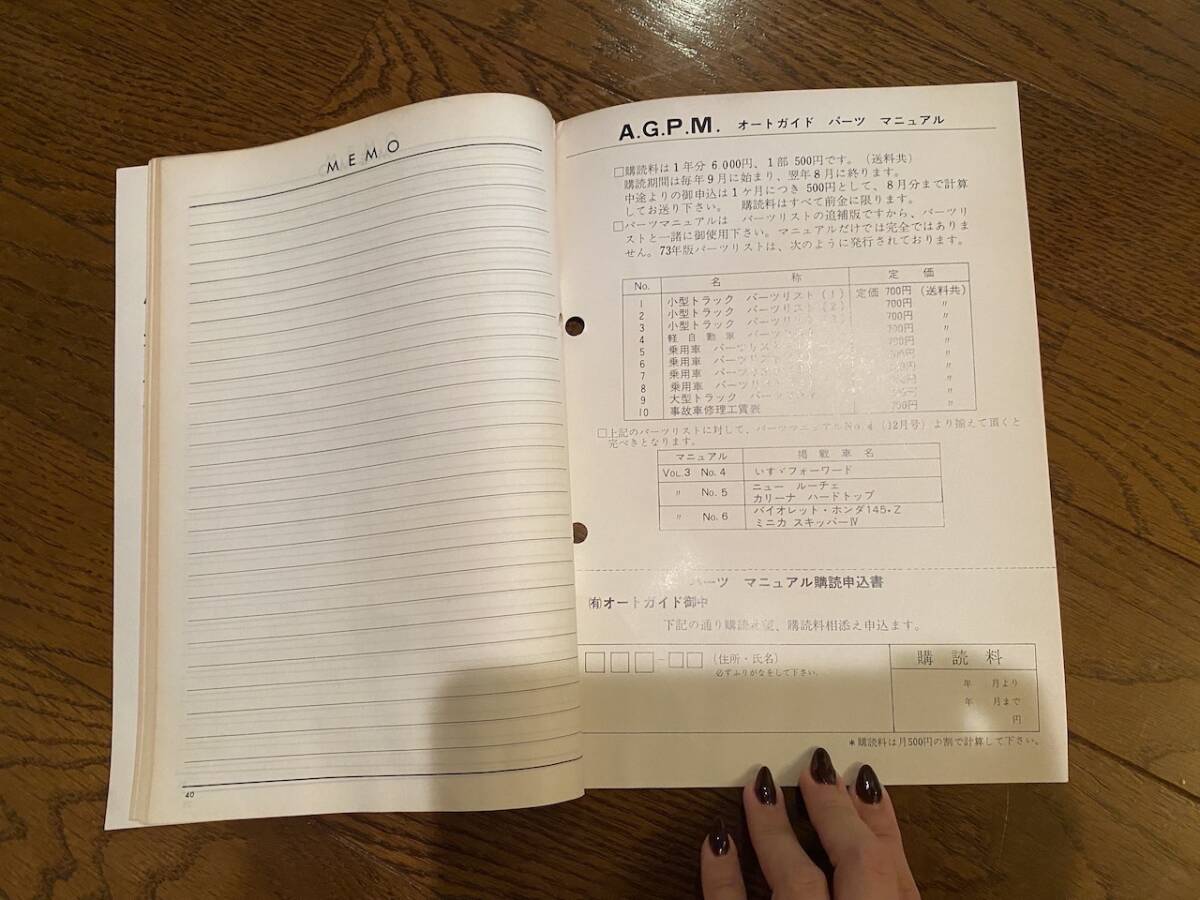 MEMO
40
A.G.P.M. オートガイド パーツ マニュアル
□購読料は1年分 6,000円、1部 500円です。(送料共)
購読期間は毎年9月に始まり、翌年8月に終ります。
中途よりの御申込は1ヶ月につき 500円として、8月分まで計算
してお送り下さい。 購読料はすべて前金に限ります。
□パーツマニュアルは パーツリストの追補版ですから、パーツリ
ストと一諸に御使用下さい。マニュアルだけでは完全ではありま
せん。73年版パーツリストは、次のように発行されております。
No. 名 称 定 価
1 小型トラック パーツリスト(1) 定価 700円 (送料共)
2 小型トラック パーツリスト(2) 700円 〃
3 小型トラック パーツリスト 700円 〃
4 軽自動車 パーツ 700円 〃
5 乗用車 パーツリスト 〃
6 乗用車 パーツリスト 〃
7 乗用車 パーツリスト 〃
8 乗用車 パーツリスト 〃
9 大型トラック パーツ 〃
10 事故車修理工賃表 700円 〃
□上記のパーツリストに対して、パーツマニュアルNo.4(12月号)より揃えて頂くと
完ぺきとなります。
マニュアル 掲載車名
VOL.3 No.4 いすゞフォーワード
〃 No.5 ニュー ルーチェ
カリーナ ハードトップ
〃 No.6 バイオレット・ホンダ145・Z
ミニカ スキッパーⅣ
パーツ マニュアル購読申込書
(有)オートガイド御中
下記の通り購読 望、購読料相添え申込ます。
□□□-□□ (住所・氏名)
必ずふりがなをして下さい。
購読料
年 月より
年 月まで
円
*購読料は月500円の割で計算して下さい。